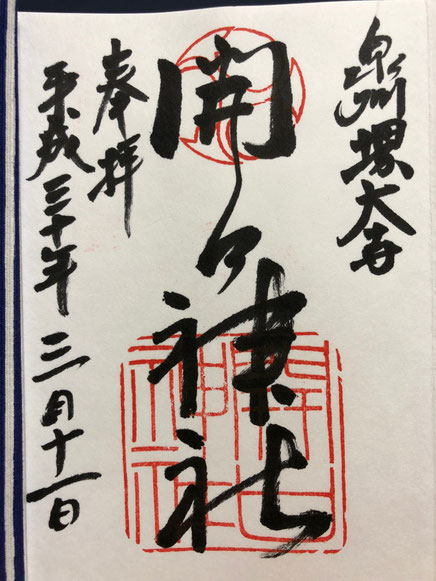 泉州堺大寺
開口神社
開口
神社
奉拝
平成三十年三月十一日